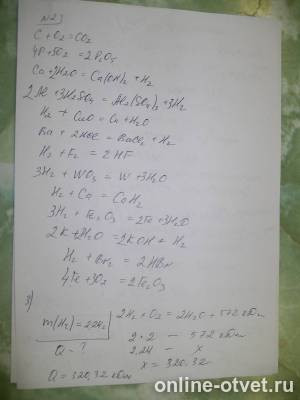 №23
C + O2 = CO2
4P + 5O2 = 2P2O5
Ca + 2H2O = Ca(OH)2 + H2
2Al + 3H2SO4 = Al2(SO4)3 + 3H2
H2 + CuO = Cu + H2O
Ba + 2HCl = BaCl2 + H2
H2 + F2 = 2HF
3H2 + WO3 = W + 3H2O
H2 + Ca = CaH2
3H2 + Fe2O3 = 2Fe + 3H2O
2K + 2H2O = 2KOH + H2
H2 + Br2 = 2HBr
4Fe + 3O2 = 2Fe2O3
3)
m(H2) = 2,24г
Q - ?
Q = 320,32 кДж
2H2 + O2 = 2H2O + 572 кДж
2·2 — 572 кДж
2,24 — x
x = 320,32
online-otvet.ru